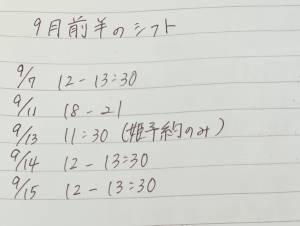 9月前半のシフト
9/7 12-13:30
9/11 18-21
9/13 11:30 (姫予約のみ)
9/14 12-13:30
9/15 12-13:30